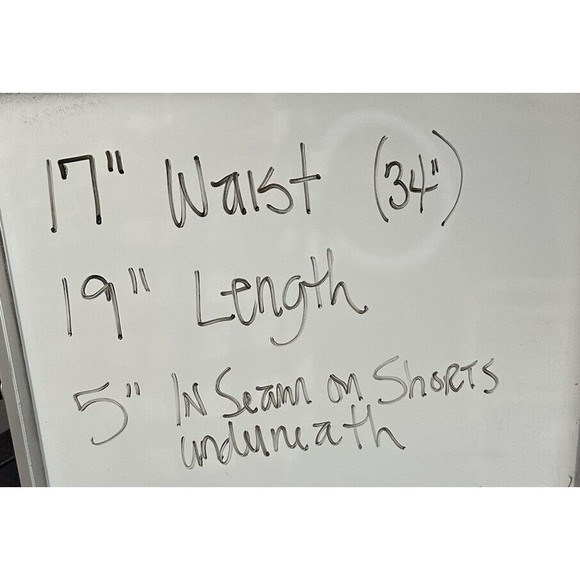 17" Waist (34")
19" Length
5" IN Seam on SHORTS
underneath